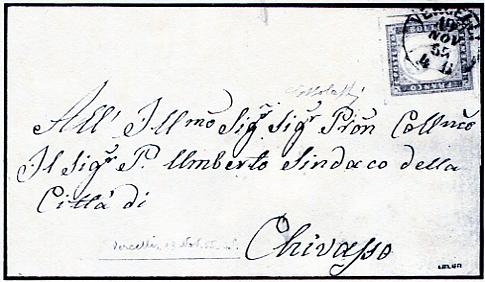 VERCELLI
19
NOV
55
4 S
FRANCO
All' Ill.mo Sig.r Sig.r Pron Coll.mo
Il Sig.r P. Umberto Sindaco della
Città di
Chivasso
Vercelli, 19 Nov. 55